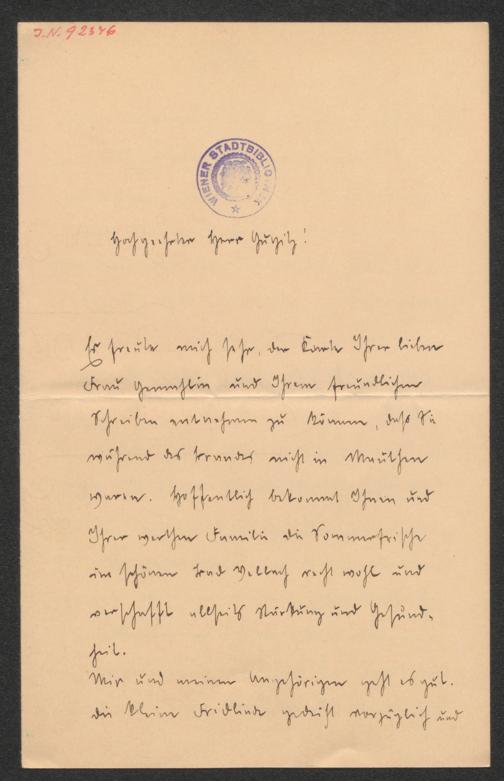 J.N. 92376
WIENER STADTBIBLIOTHEK
Hochgeehrter Herr Gugitz!
Es freute mich sehr, der Karte Ihrer lieben
Frau Gemahlin und Ihrem freundlichen
Schreiben entnehmen zu können, daß Sie
während des Brandes nicht in Mauthen
waren. Hoffentlich bekommt Ihnen und
Ihrer werthen Familie die Sommerfrische
im schönen Bad Vellach recht wohl und
verschafft allseits Stärkung und Gesund-
heit.
Mir und meinen Angehörigen geht es gut.
Die kleine Fridlinde gedeiht vorzüglich und